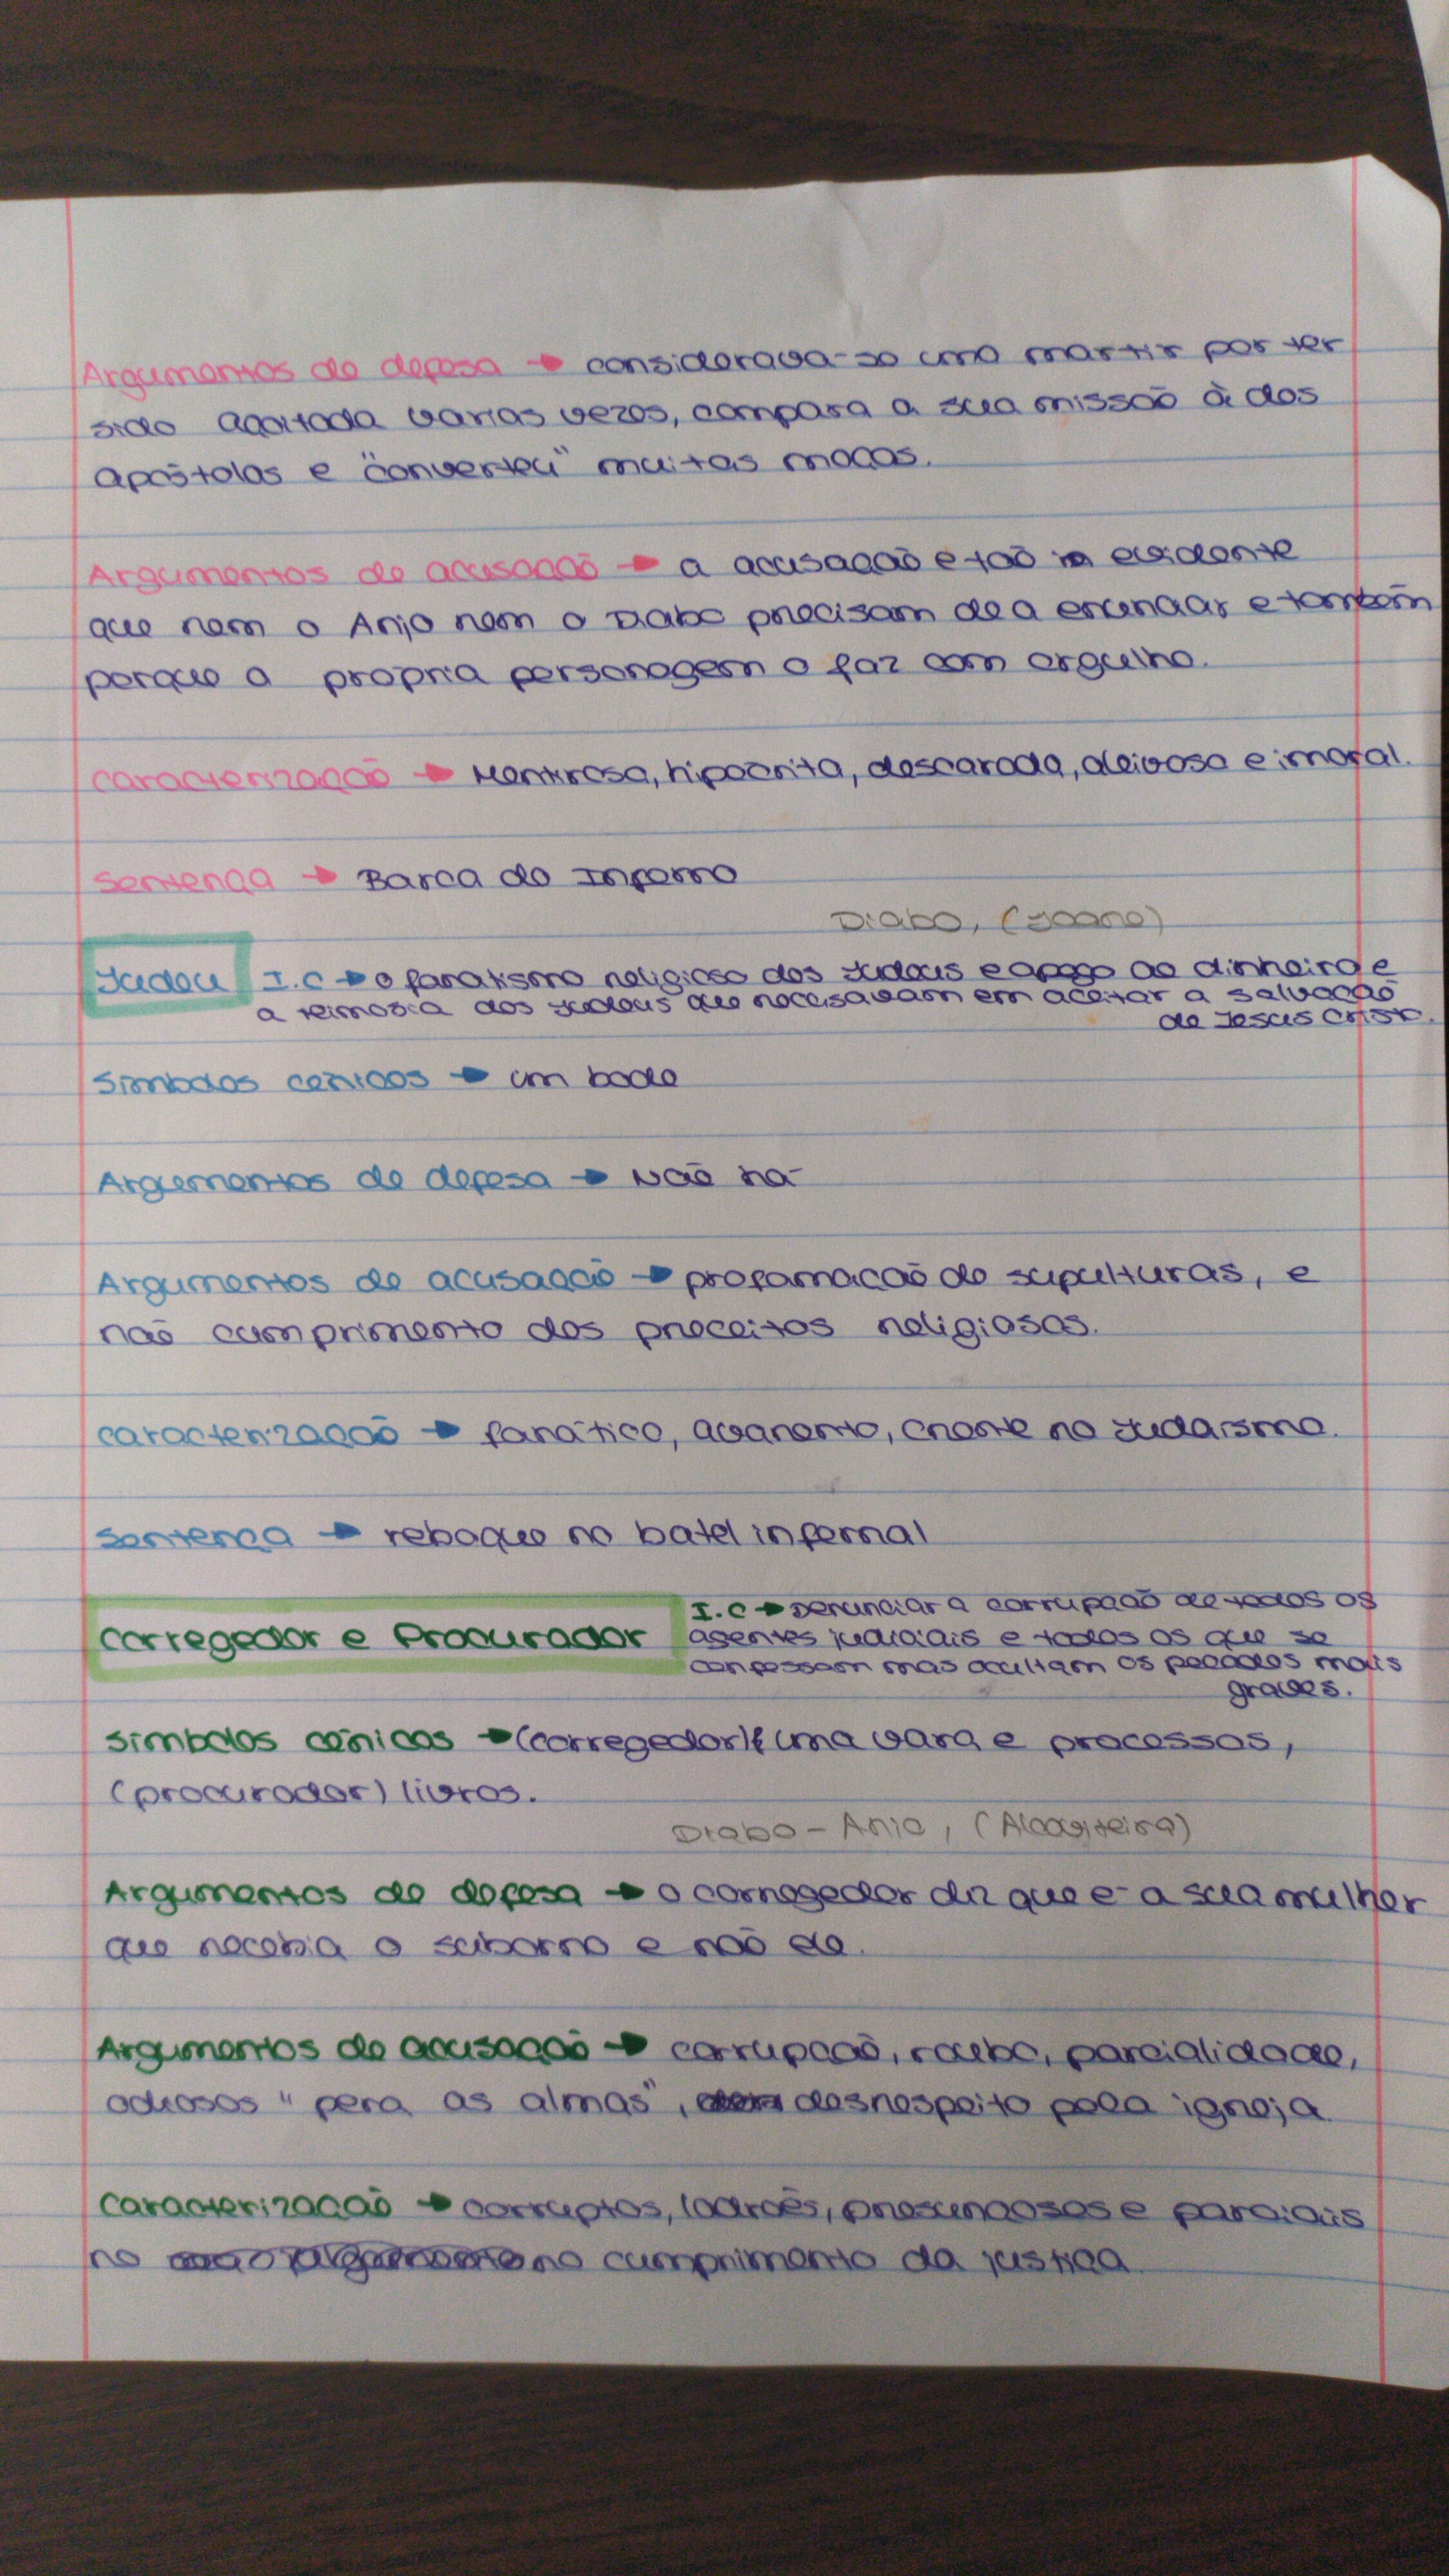 Argumentos de defesa → considerava-se uma martir por ter
sido açoitada varias vezes, compara a sua missão à dos
apóstolos e "converteu" muitas moças.
Argumentos de acusação → a acusação é tão evidente
que nem o Anjo nem o Diabo precisam de a enunciar e também
porque a própria personagem o faz com orgulho.
Caracterização → Mentirosa, hipócrita, descarada, aleivosa e imoral.
Sentença → Barca do Inferno
Diabo, (Joane)
Judeu I.C → o fanatismo religioso dos Judeus e apego ao dinheiro e
a teimosia dos Judeus que recusavam em aceitar a salvação
de Jesus Cristo.
Símbolos cénicos → um bode
Argumentos de defesa → Não há
Argumentos de acusação → profamação de supulturas, e
não cumprimento dos preceitos religiosos.
Caracterização → fanático, avarento, crente no Judaísmo.
Sentença → reboque no batel infernal
Corregedor e Procurador
I.C → Denunciar a corrupção de todos os
agentes judiciais e todos os que se
confessam mas ocultam os pecados mais
graves.
Símbolos cénicos → (corregedor) uma vara e processos,
(procurador) livros.
Diabo - Anjo, (Alcoviteira)
Argumentos de defesa → o corregedor diz que é a sua mulher
que recebia o suborno e não ele.
Argumentos de acusação → corrupção, roubo, parcialidade,
odiosos "pera as almas", desrespeito pela igreja.
Caracterização → corruptos, ladrões, presunçosos e parciais
no no cumprimento da justiça.